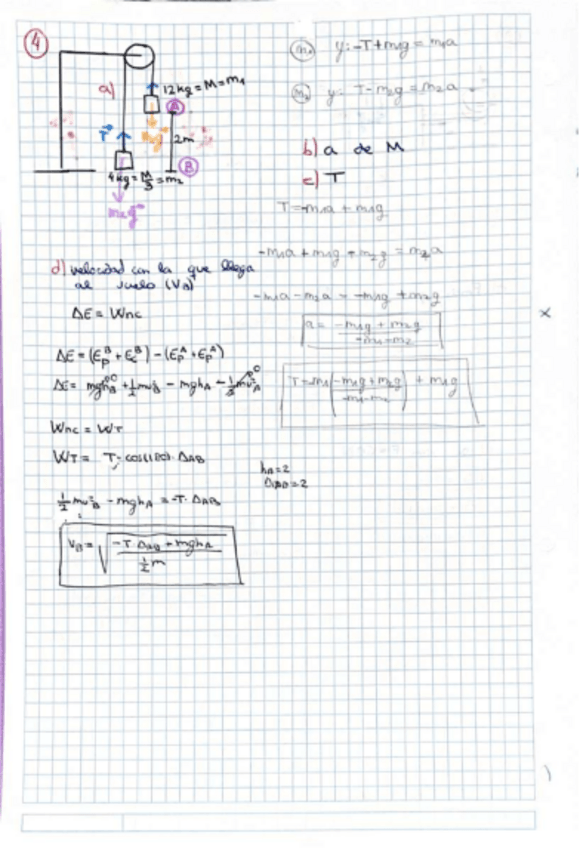 4
a)
12kg = M = m₁
A
m₁g
T
2m
B
4kg = M/3 = m₂
m₂g
m₁ y: -T + m₁g = m₁a
m₂ y: T - m₂g = m₂a
b) a de M
c) T
T = -m₁a + m₁g
-m₁a + m₁g - m₂g = m₂a
-m₁a - m₂a = -m₁g + m₂g
a = (-m₁g + m₂g)/(-m₁ - m₂)
T = -m₁((-m₁g + m₂g)/(-m₁ - m₂)) + m₁g
d) velocidad con la que llega
al suelo (VB)
ΔE = Wnc
ΔE = (EpB + EcB) - (EpA + EcA)
ΔE = mghB⁰ + 1/2 mvB² - mghA - 1/2 mvA² ⁰
Wnc = WT
WT = T · cos(180) · ΔAB
hA = 2
ΔAB = 2
1/2 mvB² - mghA = -T · ΔAB
VB = √((-T · ΔAB + mghA)/(1/2 m))